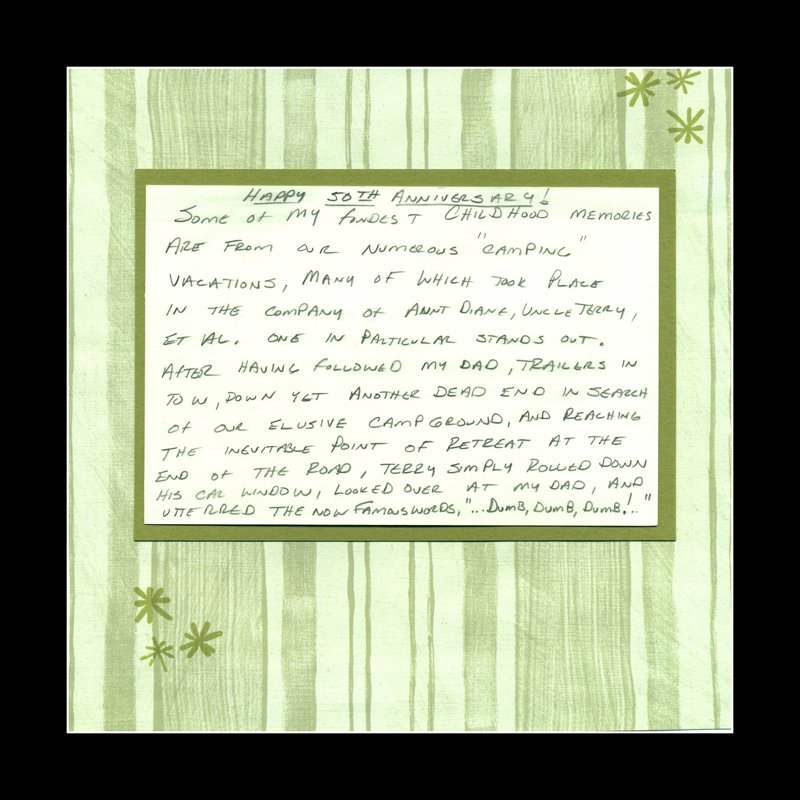 Happy 50th Anniversary!
Some of my fondest childhood memories
are from our numerous "camping"
vacations, many of which took place
in the company of Aunt Diane, Uncle Terry,
et al. One in particular stands out.
After having followed my dad, trailers in
tow, down yet another dead end in search
of our elusive campground, and reaching
the inevitable point of retreat at the
end of the road, Terry simply rolled down
his car window, looked over at my dad, and
utterred the now famous words, "...Dumb, Dumb, Dumb!.."